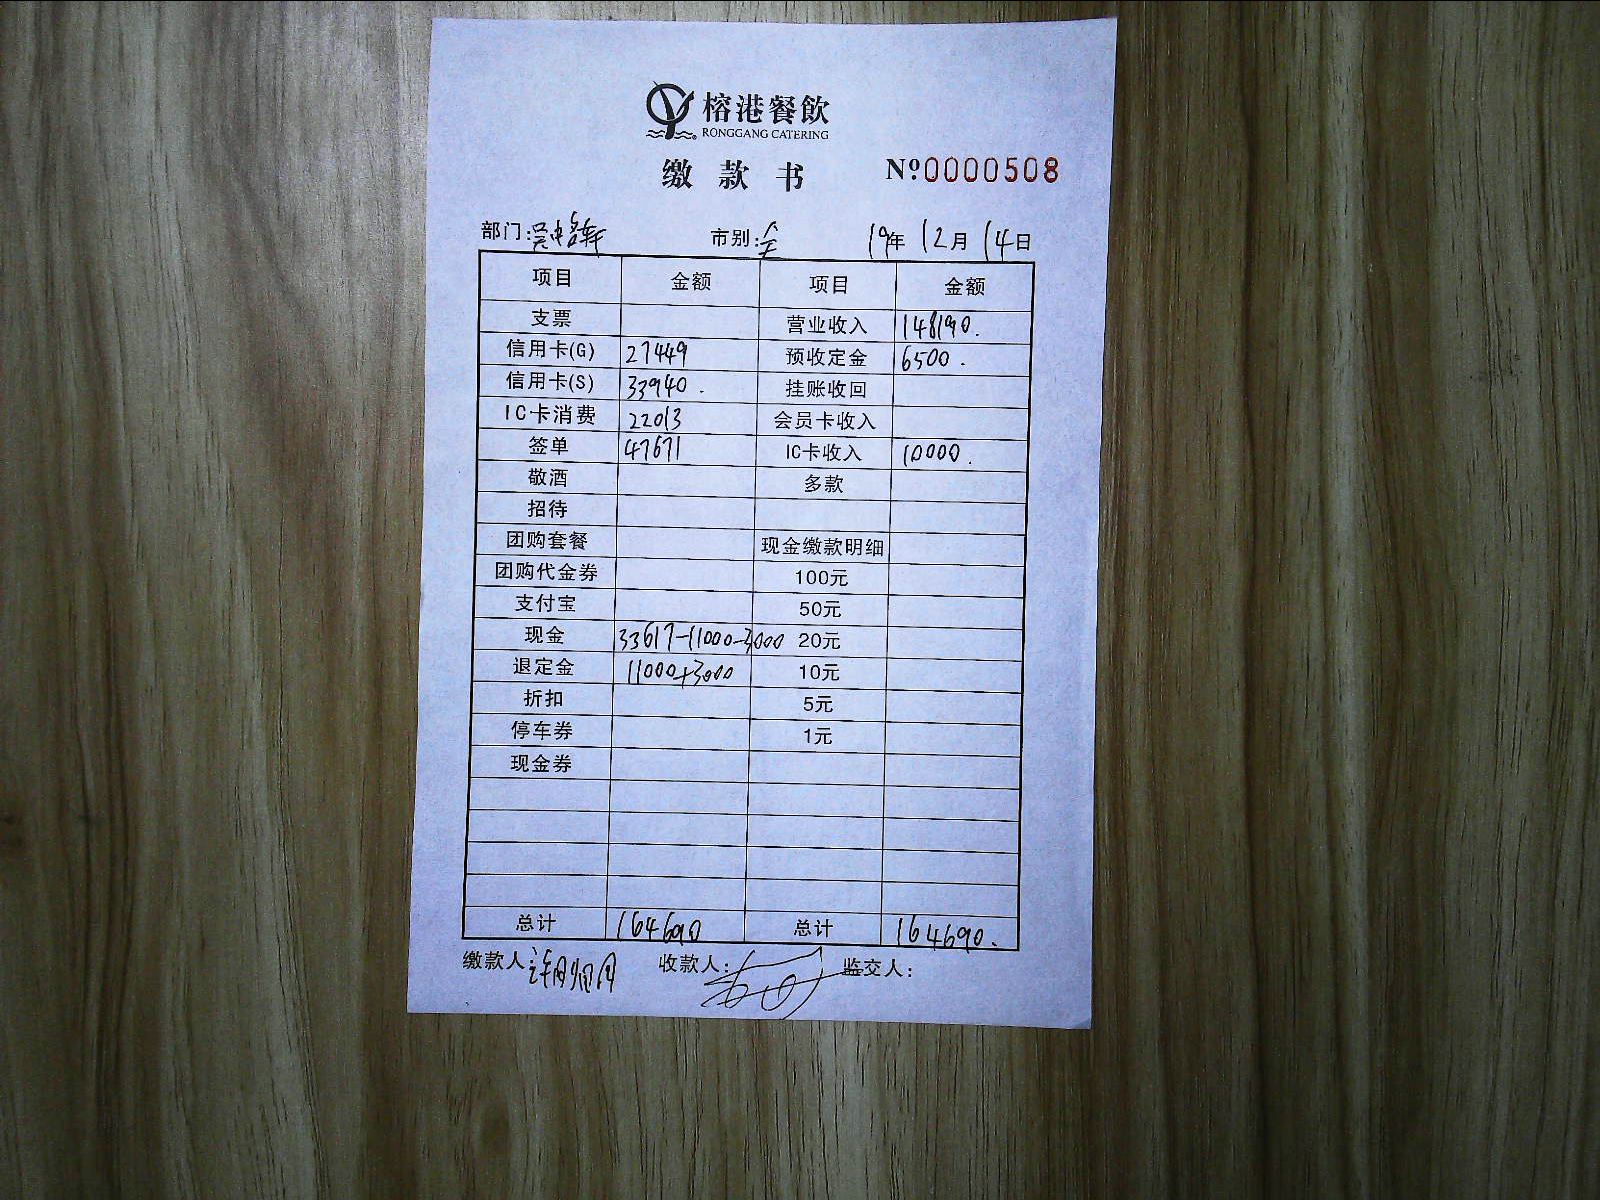 榕港餐飲
RONGGANG CATERING
缴款书 №0000508
部门: 市别:全 19年12月14日
项目 金额 项目 金额
支票 营业收入 148190.
信用卡(G) 27449 预收定金 6500.
信用卡(S) 33940. 挂账收回
IC卡消费 22013 会员卡收入
签单 47671 IC卡收入 10000.
敬酒 多款
招待
团购套餐 现金缴款明细
团购代金券 100元
支付宝 50元
现金 33617-11000-3000 20元
退定金 11000+3000 10元
折扣 5元
停车券 1元
现金券
总计 164690 总计 164690.
缴款人: 收款人: 监交人: